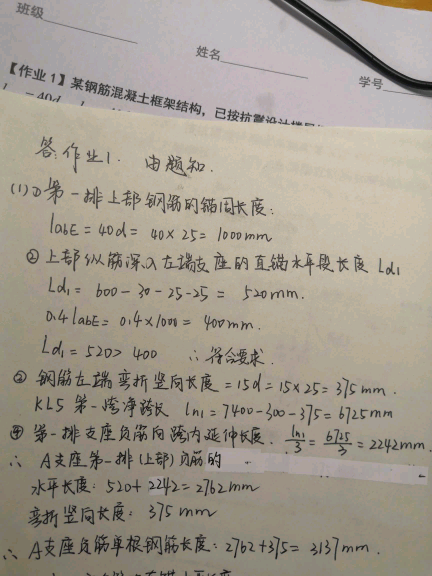 班级
姓名
学号
【作业1】某钢筋混凝土框架结构，已按抗震设计
=40d
答:作业1. 由题知.
(1)①第一排上部钢筋的锚固长度:
labE=40d=40×25=1000mm
②上部纵筋深入左端支座的直锚水平段长度 Ld1
Ld1=600-30-25-25=520mm.
0.4labE=0.4×1000=400mm.
Ld1=520>400 ∴符合要求.
③ 钢筋左端弯折竖向长度=15d=15×25=375mm.
KL5 第一跨净跨长 ln1=7400-300-375=6725mm
④第一排支座负筋向跨内延伸长度: ln1/3=6725/3=2242mm.
∴ A支座第一排(上部)负筋的
水平长度: 520+2242=2762mm
弯折竖向长度: 375mm
∴A支座负筋单根钢筋长度: 2762+375=3137mm.